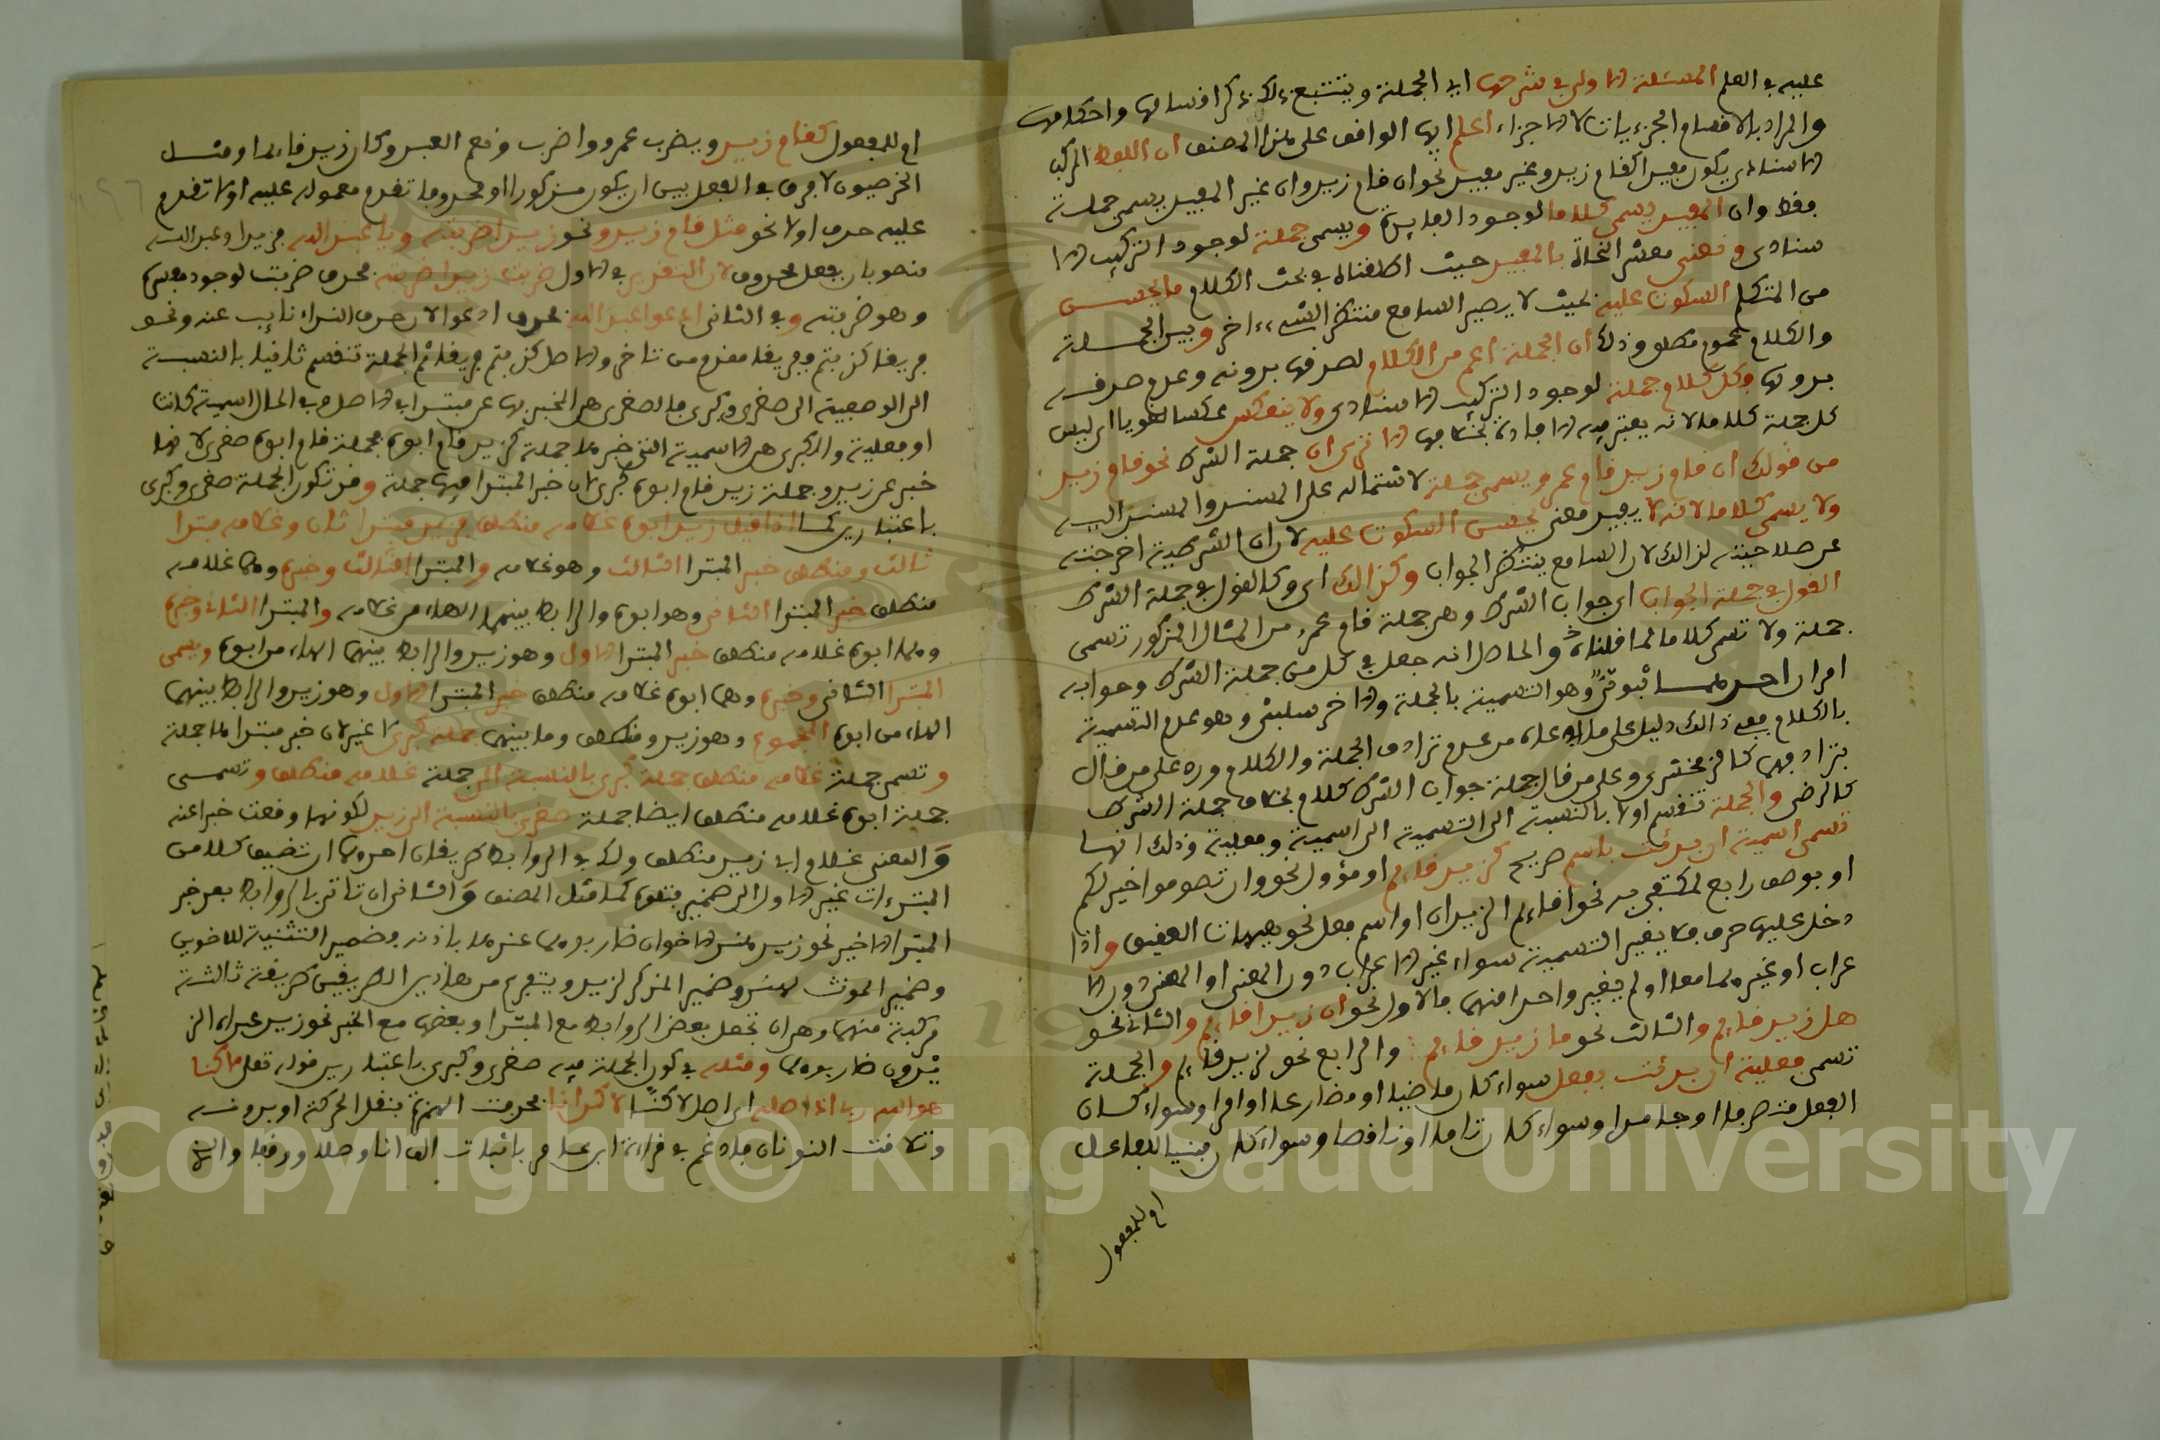 عليه في العلم المسئلة الاولى في شرحها اي الجملة ويتتبع ذلك ذكر اقسامها واحكامها
والمراد بالاقسام الجزءيات لا الاجزاء اعلم ايها الواقف على هذا المصنف ان اللفظ المركب
الاسنادي يكون مفيدا كقام زيد وغير مفيد نحو ان قام زيد وان غير المفيد يسمى جملة
فقط وان المفيد يسمى كلاما لوجود الفايدة ويسمى جملة لوجود التركيب الا
سنادي ونعني معشر النحاة بالمفيد حيث اطلقناه في بحث الكلام ما يحسن
من المتكلم السكوت عليه بحيث لا يصير السامع منتظرا لشيء اخر وبين الجملة
والكلام عموم مطلق وذلك ان الجملة اعم من الكلام لصدقها بدونه وعدم صدقه
بدونها وكل كلام جملة لوجود التركيب الاسنادي ولا ينعكس عكسا لغويا اي ليس
كل جملة كلاما لانه يعتبر فيه الافادة بخلافها الا ترى ان جملة الشرط نحو قام زيد
من قولك ان قام زيد قام عمرو يسمى جملة لاشتماله على المسند والمسند اليه
ولا يسمى كلاما لانه لا يفيد معنى يحسن السكوت عليه لان ان الشرطية اخرجته
عن صلاحيته لذالك لان السامع ينتظر الجواب وكذالك اي وكالقول في جملة الشرط
القول في جملة الجواب اي جواب الشرط وهي جملة قام عمرو من المثال المذكور تسمى
جملة ولا تسمى كلاما لما قلناه والحاصل انه جعل في كل من جملة الشرط وجوابه
امران احدهما ثبوتي وهو التسمية بالجملة والاخر سلبي وهو عدم التسمية
بالكلام ففي ذالك دليل على ما ادعاه من عدم ترادف الجملة والكلام ورد على من قال
بترادفهما كالزمخشري وعلى من قال جملة جواب الشرط كلام بخلاف جملة الشرط
كالرضي والجملة تنقسم اولا بالنسبة الى التسمية الى اسمية وفعلية وذلك انها
تسمى اسمية ان بدئت باسم صريح كزيد قايم او مؤول نحو وان تصوموا خير لكم
او بوصف رابع لمكتفى به نحو اقايم الزيدان او اسم فعل نحو هيهات العقيق واذا
دخل عليها حرف فلا يغير التسمية سواء غير الاعراب دون المعنى او المعنى دون الا
عراب او غيرهما معا او لم يغير واحدا منهما فالاول نحو ان زيدا قايم والثاني نحو
هل زيد قايم والثالث نحو ما زيد قايما والرابع نحو لزيد قايم والجملة
تسمى فعلية ان بدئت بفعل سواء كان ماضيا او مضارعا او امرا وسواء كان
الفعل متصرفا او جامدا وسواء كان تاما او ناقصا وسواء كان مبنيا للفاعل
او للمفعول
او للمفعول كقام زيد ويضرب عمرو واضرب ونعم العبد وكان زيد قايما وقتل
الخرصون لا فرق في الفعل بين ان يكون مذكورا او محذوفا تقدم معموله عليه او لا تقدم
عليه حرف او لا نحو مثل قام زيد ونحو زيدا ضربته ويا عبد الله فزيدا وعبد الله
منصوبان بفعل محذوف لان التقدير في الاول ضربت زيدا ضربته فحذف ضربت لوجود مفسره
وهو ضربته وفي الثاني ادعوا عبد الله فحذف ادعوا لان حرف النداء نايب عنه ونحو
فريقا كذبتم ففريقا مقدم من تاخر والاصل كذبتم فريقا ثم الجملة تنقسم ثانيا بالنسبة
الى الوصفية الى صغرى وكبرى فالصغرى هي المخبر بها عن مبتدا في الاصل او في الحال اسمية كانت
او فعلية والكبرى هي الاسمية التي خبرها جملة كزيد قام ابوه فجملة قام ابوه صغرى لانها
خبر عن زيد وجملة زيد قام ابوه كبرى لان خبر المبتدا فيها جملة وقد تكون الجملة صغرى وكبرى
باعتبارين كما اذا قيل زيد ابوه غلامه منطلق فزيد مبتدا اول وابوه مبتدا ثان وغلامه مبتدا
ثالث ومنطلق خبر المبتدا الثالث وهو غلامه والمبتدا الثالث وخبره وهما غلامه
منطلق خبر المبتدا الثاني وهو ابوه والرابط بينهما الهاء من غلامه والمبتدا الثاني وخبره
وهما ابوه غلامه منطلق خبر المبتدا الاول وهو زيد والرابط بينهما الهاء من ابوه ويسمى
المبتدا الثاني وخبره وهما ابوه غلامه منطلق خبر المبتدا الاول وهو زيد والرابط بينهما
الهاء من ابوه المجموع وهو زيد ومنطلق وما بينهما جملة كبرى لا غير لان خبر مبتداها جملة
وتسمى جملة غلامه منطلق جملة كبرى بالنسبة الى جملة غلامه منطلق وتسمى
جملة ابوه غلامه منطلق ايضا جملة صغرى بالنسبة الى زيد لكونها وقعت خبرا عنه
والمعنى غلام ابي زيد منطلق ولك في الروابط طريقان احدهما ان تضيف كلا من
المبتدءات غير الاول الى ضمير متلوه كما مثل المصنف والثاني ان تاتي بالروابط بعد خبر
المبتدا الاخير نحو زيد هند الاخوان ضاربوهما عندها باذنه فضمير التثنية للاخوين
وضمير المونث لهند وضمير المذكر لزيد ويتفرع من هاذين الطريقين طريقة ثالثة
مركبة منهما وهي ان تجعل بعض الروابط مع المبتدا وبعضها مع الخبر نحو زيد عبداه الز
يدون ضاربوهما ومثله في كون الجملة فيه صغرى وكبرى باعتبارين قوله تعلى لاكنا
هو الله ربي اذ اصله اي اصل لاكنا لاكن انا فحذفت الهمزة بنقل الحركة او بدونه
وتلاقت النونان فادغم في قراءة ابن عامر باثبات الف انا وصلا ووقفا والذي